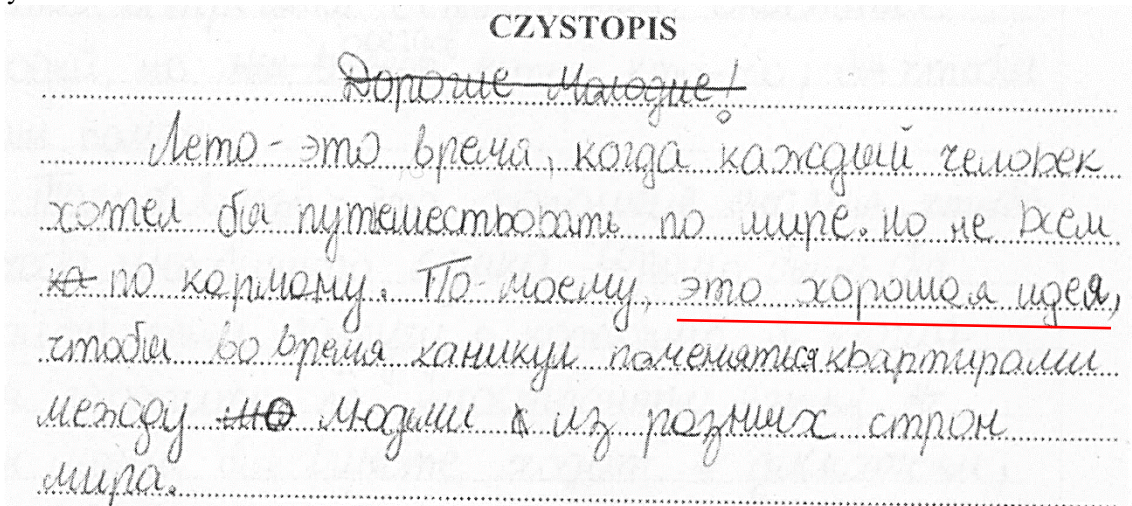 CZYSTOPIS
Дорогие Молодые!
Лето - это время, когда каждый человек
хотел бы путешествовать по мире. но не всем
по карману. По-моему, это хорошая идея,
чтобы во время каникул поменяться квартирами
между людьми из разних стран
мира.